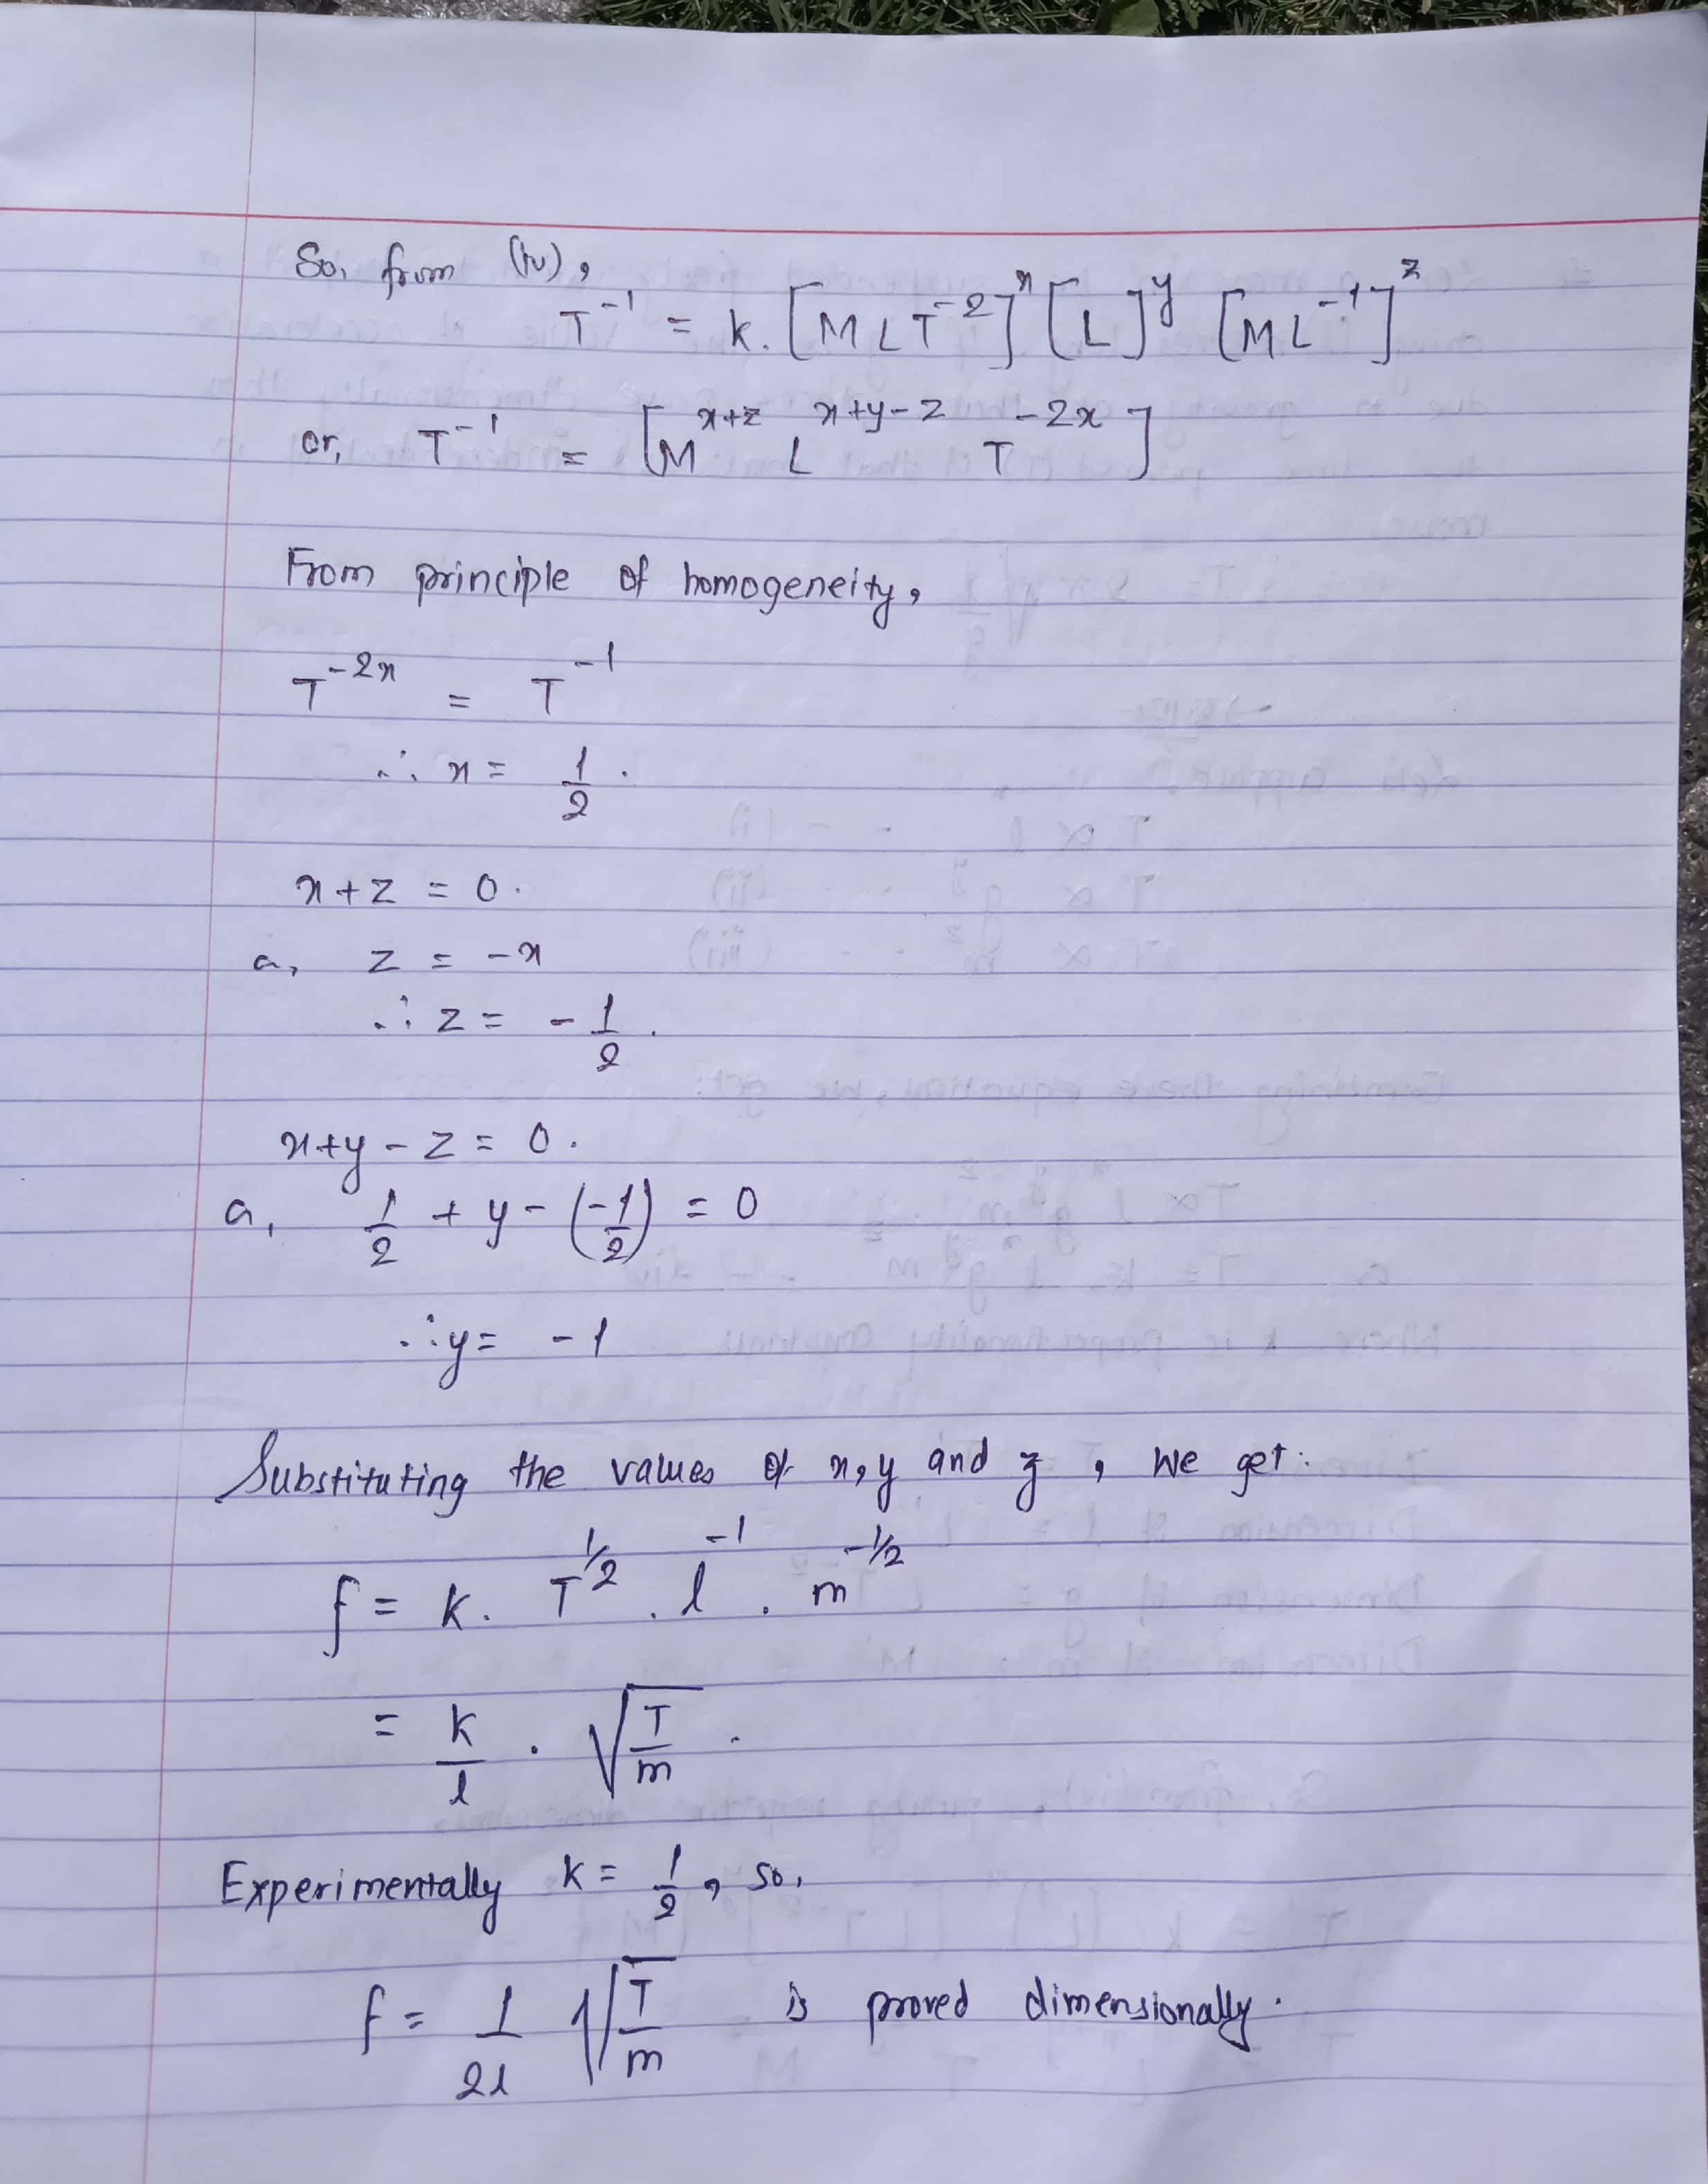 So, from (iv),
T⁻¹ = k. [MLT⁻²]ˣ [L]ʸ [ML⁻¹]ᶻ
or, T⁻¹ = [Mˣ⁺ᶻ Lˣ⁺ʸ⁻ᶻ T⁻²ˣ]
From principle of homogeneity,
T⁻²ˣ = T⁻¹
∴ x = 1/2.
x+z = 0.
a, z = -x
∴ z = -1/2.
x+y-z = 0.
a, 1/2 + y - (-1/2) = 0
∴ y = -1
Substituting the values of x, y and z, we get:
f = k. T^1/2 . l⁻¹ . m^-1/2
= k/l . √(T/m) .
Experimentally k = 1/2, so,
f = 1/2l √(T/m) is proved dimensionally.